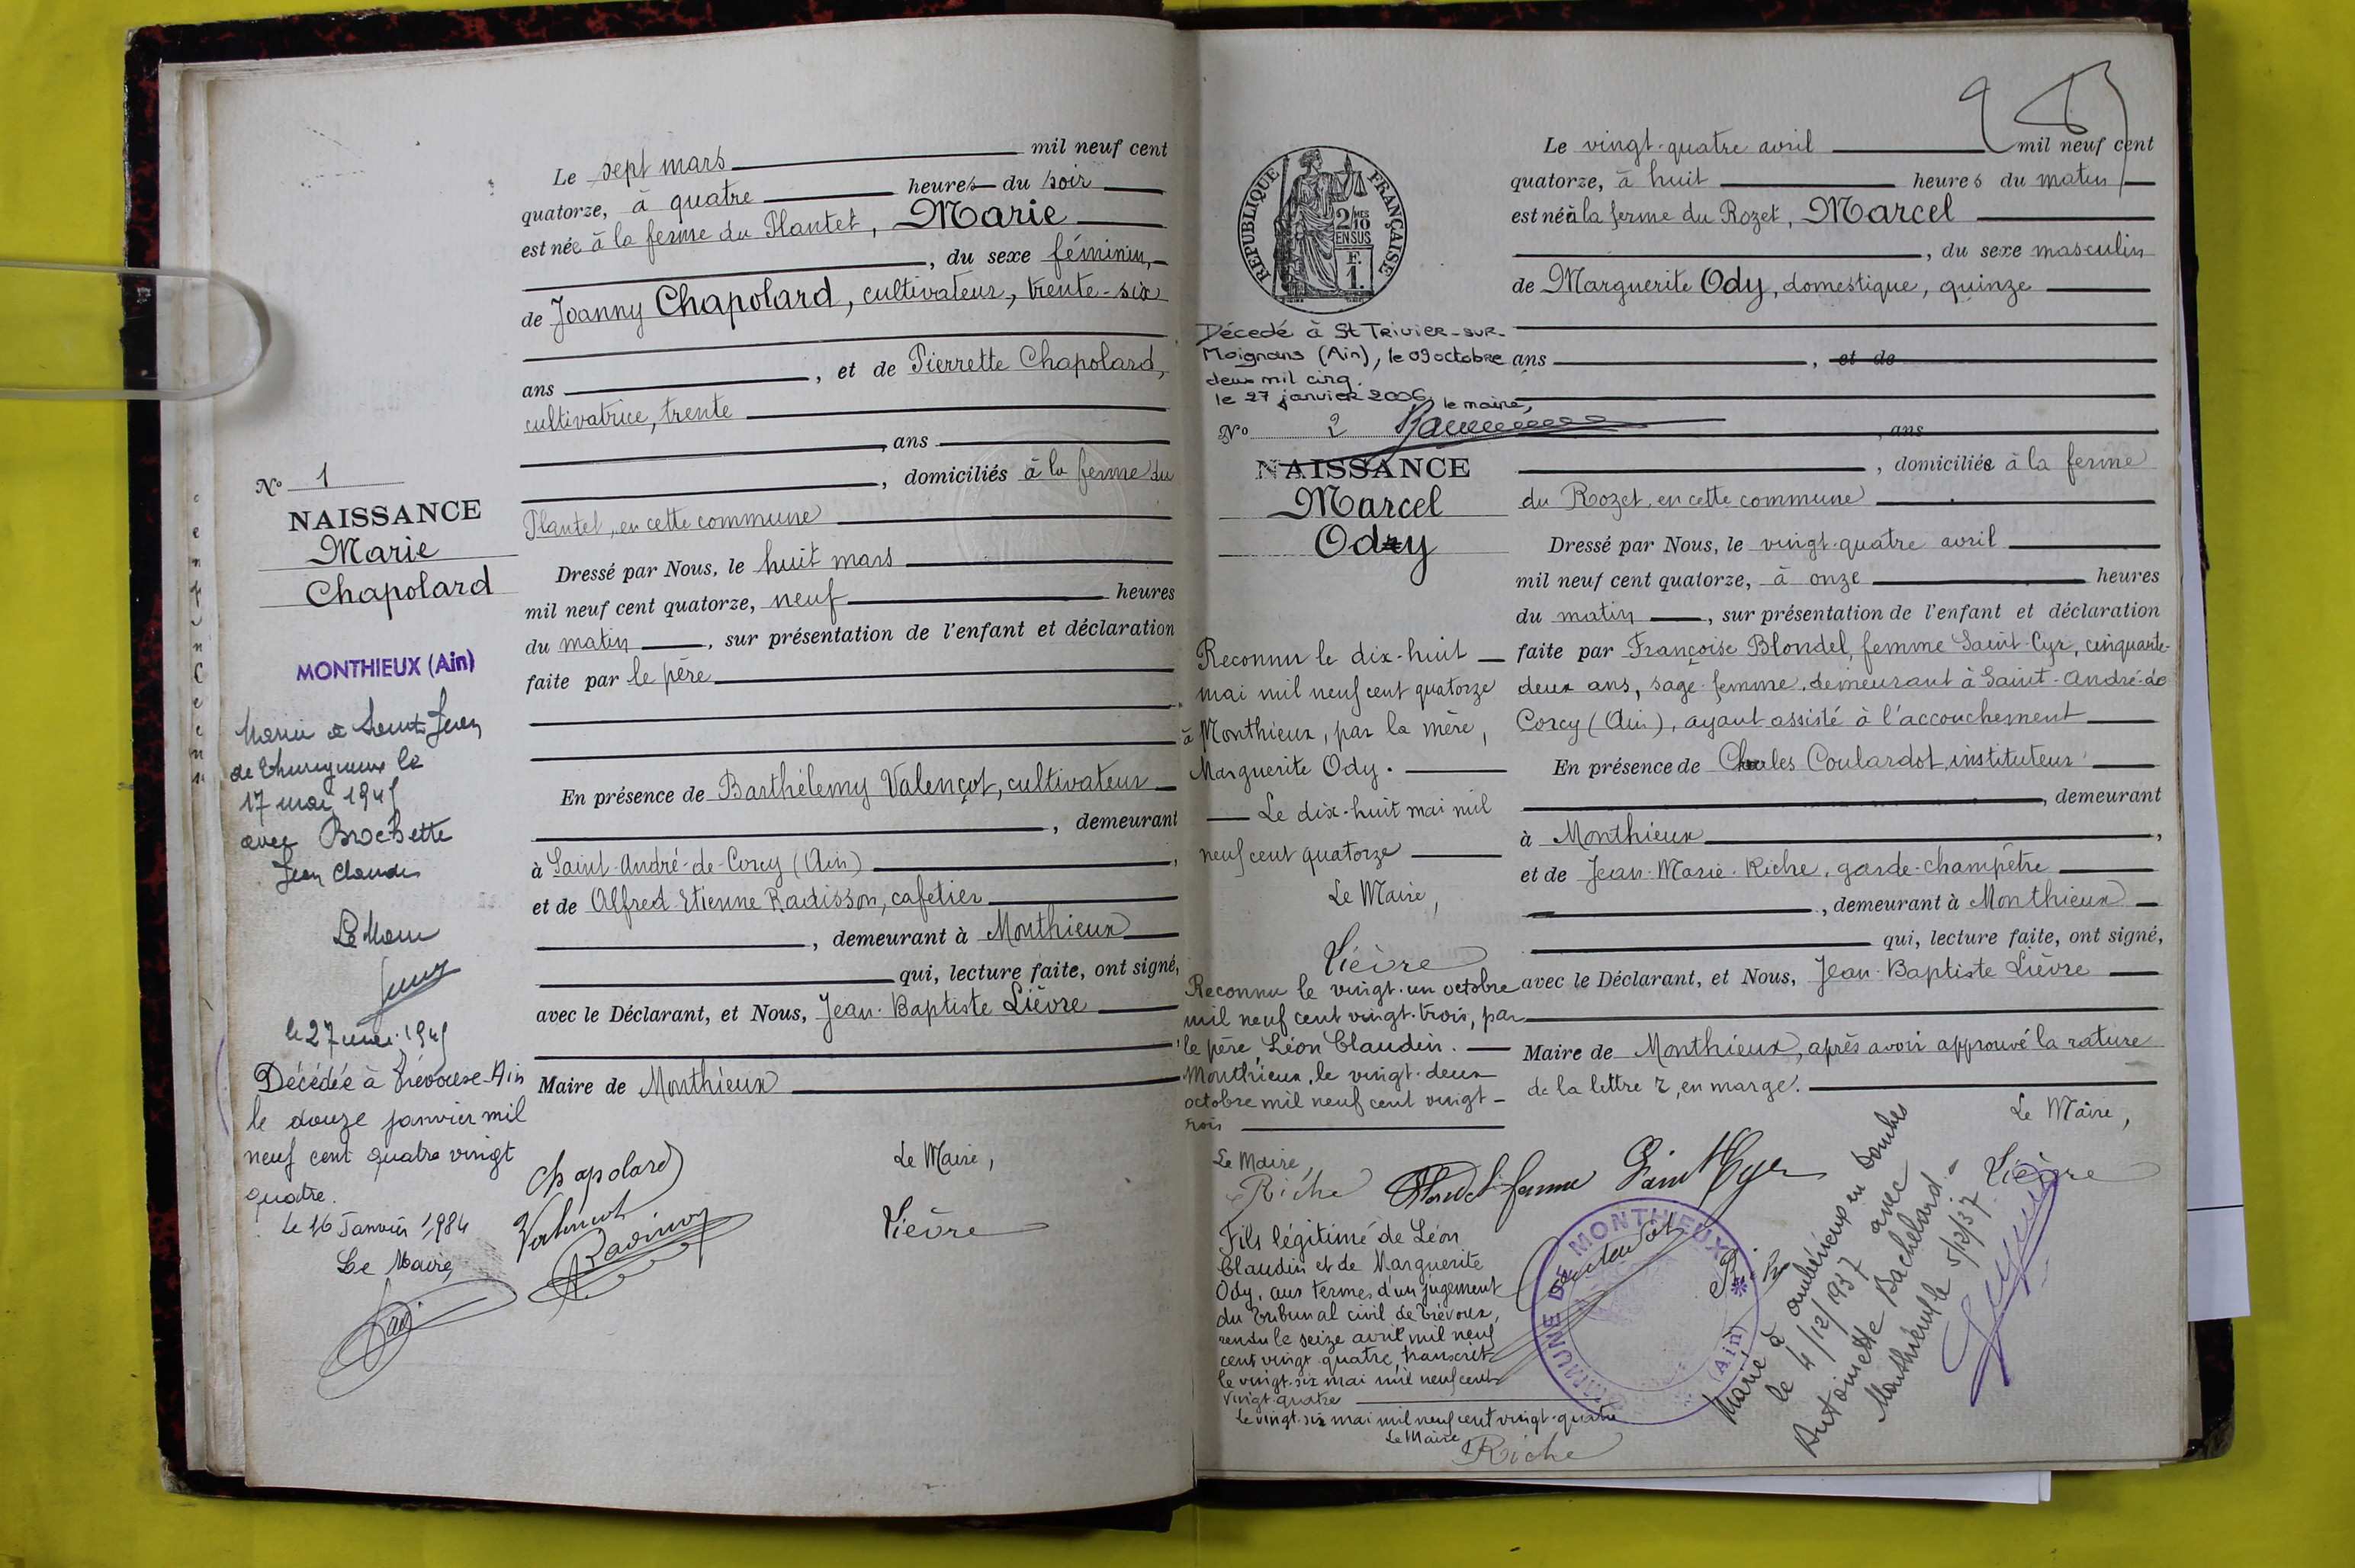 Le sept mars mil neuf cent
quatorze, à quatre heures du soir
est née à la ferme du Plantet, Marie
, du sexe féminin,
de Joanny Chapolard, cultivateur, trente-six
ans , et de Pierrette Chapolard,
cultivatrice, trente
, ans
, domiciliés à la ferme du
Plantet, en cette commune
Dressé par Nous, le huit mars
mil neuf cent quatorze, neuf heures
du matin , sur présentation de l'enfant et déclaration
faite par le père
En présence de Barthélemy Valençot, cultivateur
, demeurant
à Saint-André-de-Corcy (Ain) ,
et de Alfred Etienne Radisson, cafetier
, demeurant à Monthieux
qui, lecture faite, ont signé,
avec le Déclarant, et Nous, Jean-Baptiste Lièvre
Maire de Monthieux
Le Maire,
Chapolard
Valençot
Lièvre
Nº 1
NAISSANCE
Marie
Chapolard
MONTHIEUX (Ain)
Mariée à Saint Jean
de Thurigneux le
17 mai 194
avec Brochette
Jean Claude
Le Maire
le 27 mai 194
Décédée à Trévoux Ain
le douze janvier mil
neuf cent quatre vingt
quatre.
Le 16 Janvier 1984
Le Maire,
Le vingt-quatre avril mil neuf cent
quatorze, à huit heures du matin
est né à la ferme du Rozet, Marcel
, du sexe masculin
de Marguerite Ody, domestique, quinze
ans , et de
, ans
, domiciliée à la ferme
du Rozet, en cette commune
Dressé par Nous, le vingt-quatre avril
mil neuf cent quatorze, à onze heures
du matin , sur présentation de l'enfant et déclaration
faite par Françoise Blondel, femme Saint-Cyr, cinquante-
deux ans, sage-femme, demeurant à Saint-André-de
Corcy (Ain), ayant assisté à l'accouchement
En présence de Charles Coulardot, instituteur
, demeurant
à Monthieux ,
et de Jean-Marie Riche, garde-champêtre
, demeurant à Monthieux
qui, lecture faite, ont signé,
avec le Déclarant, et Nous, Jean-Baptiste Lièvre
Maire de Monthieux, après avoir approuvé la rature
de la lettre r, en marge.
Le Maire,
Lièvre
RÉPUBLIQUE FRANÇAISE
2/10
MES
EN SUS
F.
1.
Décedé à St Trivier-sur-
Moignans (Ain), le 09 octobre
deux mil cinq.
le 27 janvier 2006, le maire,
Nº 2
NAISSANCE
Marcel
Odry
Reconnu le dix-huit
mai mil neuf cent quatorze
à Monthieux, par la mère,
Marguerite Ody.
Le dix-huit mai mil
neuf cent quatorze
Le Maire,
Lièvre
Reconnu le vingt-un octobre
mil neuf cent vingt-trois, par
le père, Léon Claudin.
Monthieux, le vingt-deux
octobre mil neuf cent vingt-
trois
Le Maire,
Riche
Blondel femme Saint Cyr
Coulardot
Fils légitimé de Léon
Claudin et de Marguerite
Ody, aux termes d'un jugement
du tribunal civil de Trévoux,
rendu le seize avril mil neuf
cent vingt-quatre, transcrit
le vingt-six mai mil neuf cent
vingt-quatre
Le vingt-six mai mil neuf cent vingt-quatre
Le Maire,
Riche
COMMUNE DE MONTHIEUX * (Ain)
Marié à Ambérieux en Dombes
le 4/12/1937 avec
Antoinette Bachelard.
Monthieux le 5/12/37